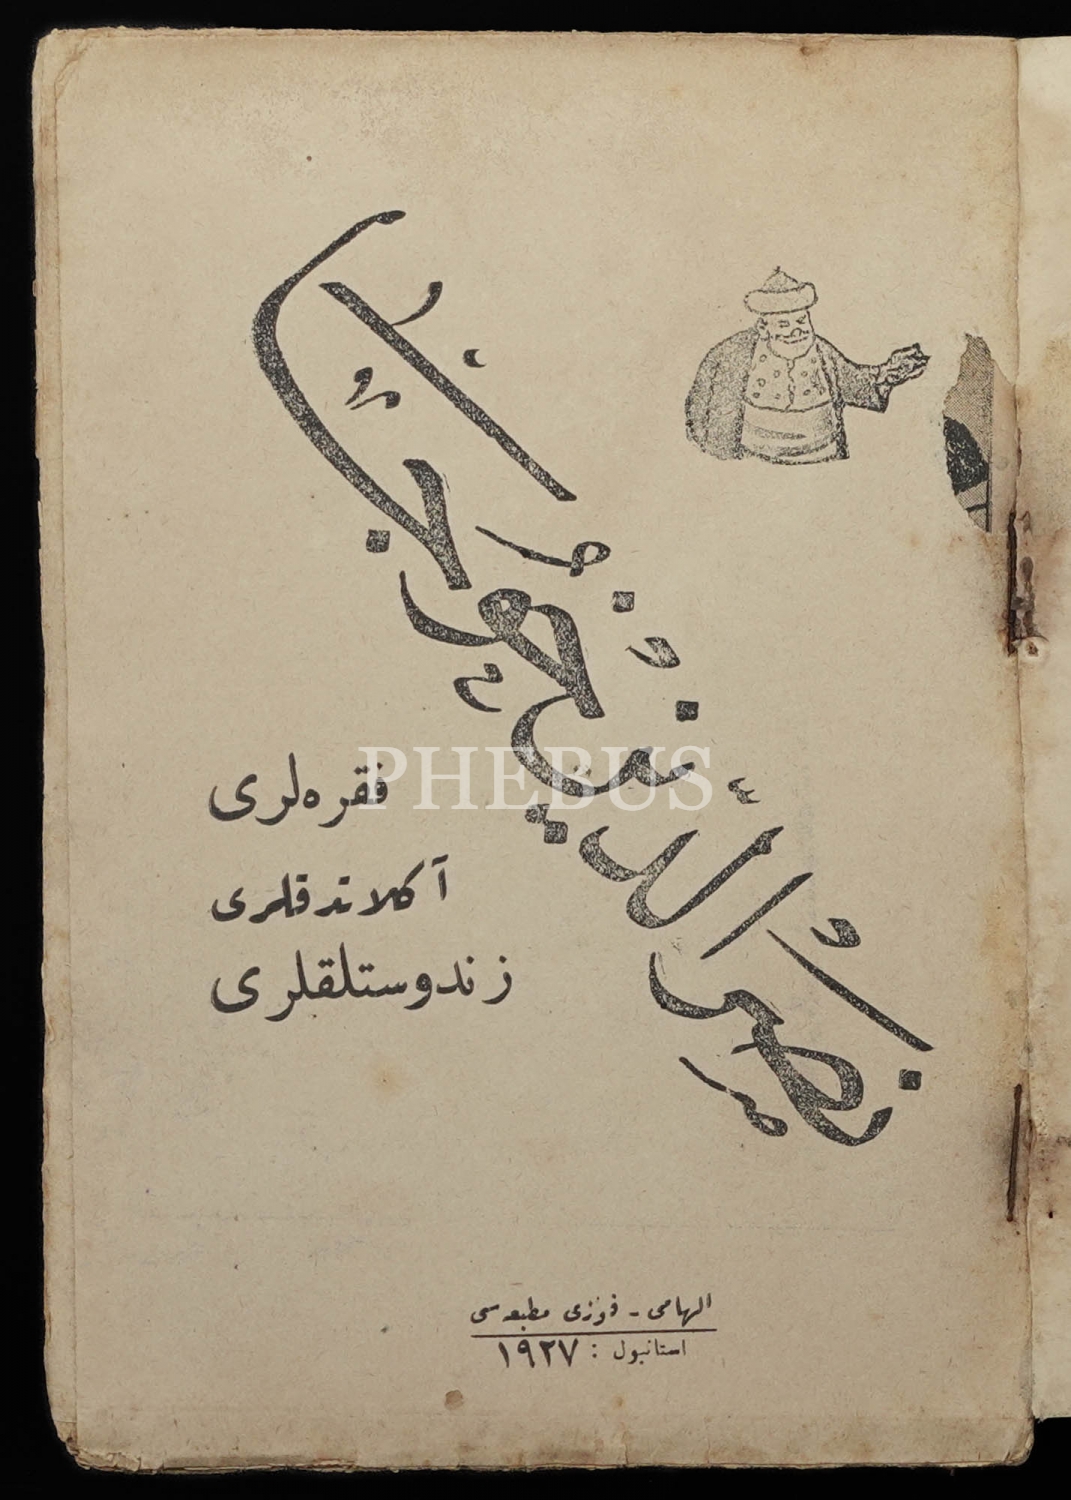 نصر الدین خواجه نك
فقره‌لری
آکلاندقلری
زندوستلقلری
الهامی - فوزی مطبعه‌سی
استانبول : ١٩٢٧
PHEBUS